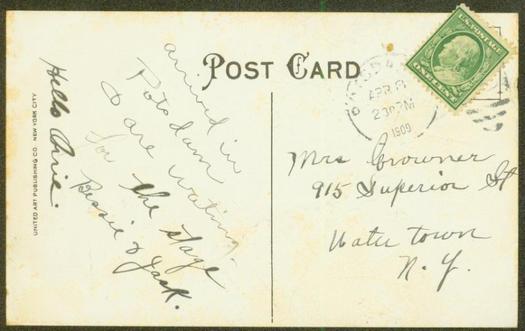 POST CARD
U.S. POSTAGE
ONE CENT
POTSDAM
APR
230PM
1909
UNITED ART PUBLISHING CO. NEW YORK CITY
Hello Ovie.
arrived in
Potsdam
& are waiting
for the stage
Bessie & Jack.
Mrs Crowner
915 Superior St
Water town
N. Y.